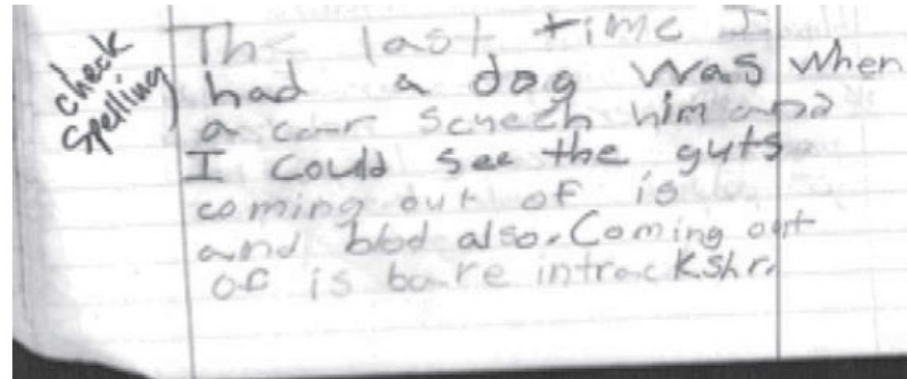 check
spelling
The last time I
had a dog was when
a car screech him and
I could see the guts
coming out of is
and blod also. Coming out
of is bare